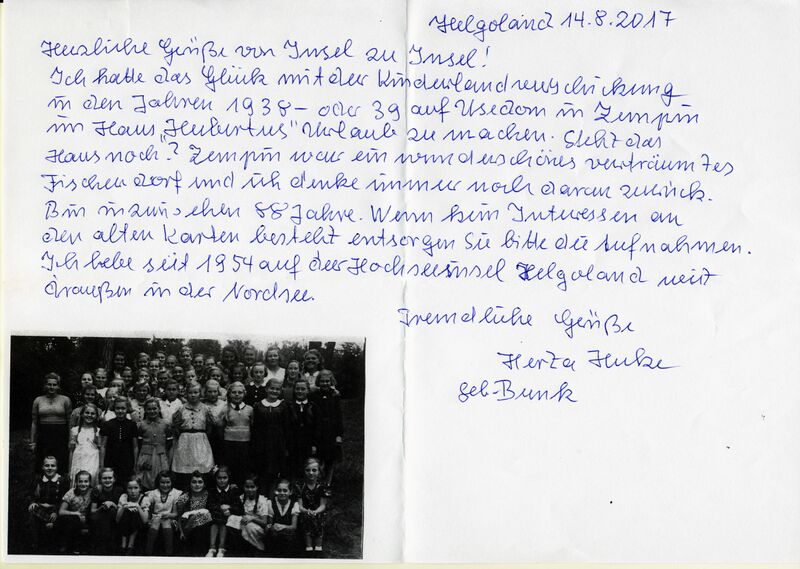 Helgoland 14.8.2017
Herzliche Grüße von Insel zu Insel!
Ich hatte das Glück mit der Kinderlandverschickung
in den Jahren 1938 - oder 39 auf Usedom in Zempin
im Haus "Hubertus" Urlaub zu machen. Steht das
Haus noch"? Zempin war ein wunderschönes verträumtes
Fischerdorf und ich denke immer noch daran zurück.
Bin inzwischen 88 Jahre. Wenn kein Interessen an
den alten Karten besteht entsorgen Sie bitte die Aufnahmen.
Ich lebe seit 1954 auf der Hochseeinsel Helgoland weit
draußen in der Nordsee.
Freundliche Grüße
Herta
geb. Bunk